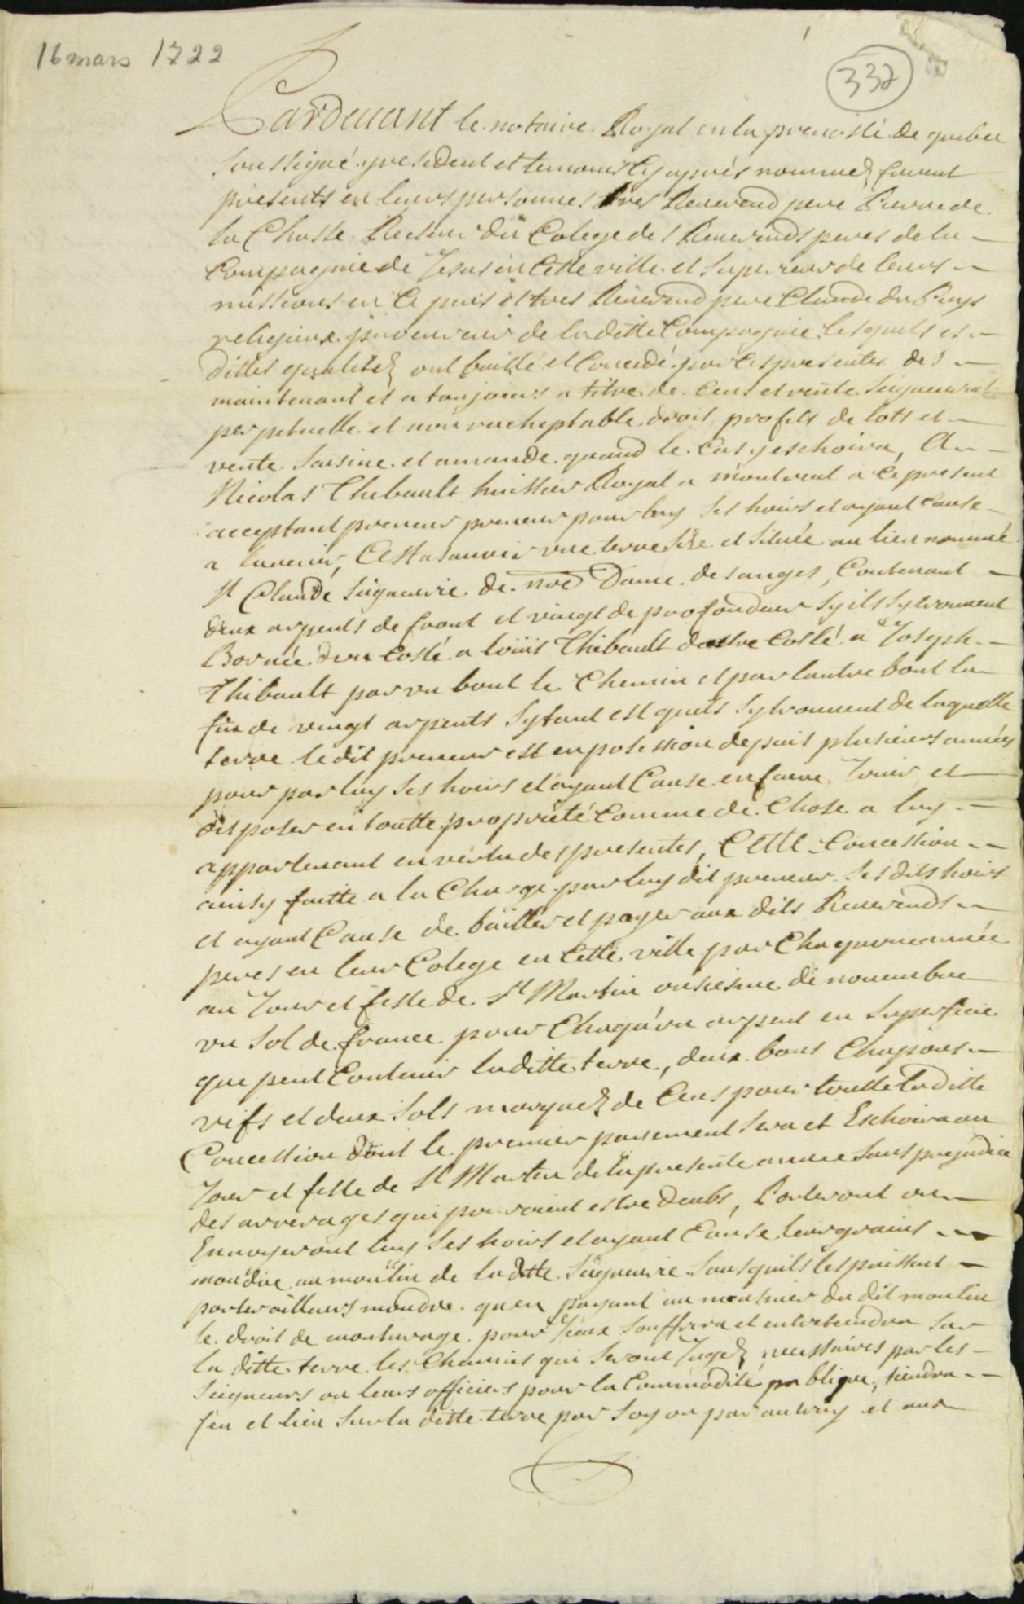 16 mars 1722
332
Pardevant le notaire Royal en la prevosté de quebec
soussigné y resident et temoins cy aprés nommez furent
presents en leurs personnes tres Reverend pere Pierre de
la Chasse Recteur du Colege des Reverends peres de la
Compagnie de Jesus en Cette ville et superieur de leurs
missions en Ce païs et tres Reverend pere Claude du Puys
religieux procureur de la ditte Compagnie lesquels es
dittes qualitez ont baillé et Concedé par Ces presentes des
maintenant et a toujours a titre de Cens et rente seigneuriale
perpetuelle et non racheptable droit profits de lots et
vente saisine et amande quand le Cas y eschoira, A
Nicolas Thibault huissier Royal a montreal a Ce present
acceptant preneur preneur pour luy ses hoirs et ayant Cause
a lavenir, Cest a scavoir une terre size et située au lieu nommé
St Claude seigneurie de nre Dame des anges, Contenant
deux arpents de front et vingt de profondeur sy ils sy trouvent
Bornée dun Costé a loüis Thibault dautre Costé a Joseph
Thibault par un bout le Chemin et par lautre bout la
fin de vingt arpents sy tant est quils sy trouvent de laquelle
terre le dit preneur est en possession depuis plusieurs années
pour par luy ses hoirs et ayant Cause en faire Jouir et
disposer en toutte propriété Comme de Chose a luy
appartenant en vertu des presentes, Cette Concession
ainsy faitte a la Charge par luy dit preneur ses dits hoirs
et ayant Cause de bailler et payer aux dits Reverends
peres en leur Colege en Cette ville par Chaque année
au Jour et feste de St Martin onsiesme de novembre
un sol de france pour Chaqu'un arpent en superficie
que peut Contenir la ditte terre, deux bons Chapons
vifs et deux sols marquez de Cens pour toutte la ditte
Concession dont le premier payement sera et Eschoira au
Jour et feste de St Martin de la presente année sans prejudice
des arrerages qui pouroient estre deubs, Porteront ou
Envoyeront luy ses hoirs et ayant Cause leurs grains
moudre au moulin de la ditte seigneurie sans quils les puissent
porter ailleurs moudre quen payant au meusnier du dit moulin
le droit de mouturage pour Iceux souffrira et entretiendra sur
la ditte terre les Chemins qui seront Jugez necessaires par les
seigneurs ou leurs officiers pour la Commodité publique, tiendra
feu et lieu sur la ditte terre par soy ou par autruy et aux